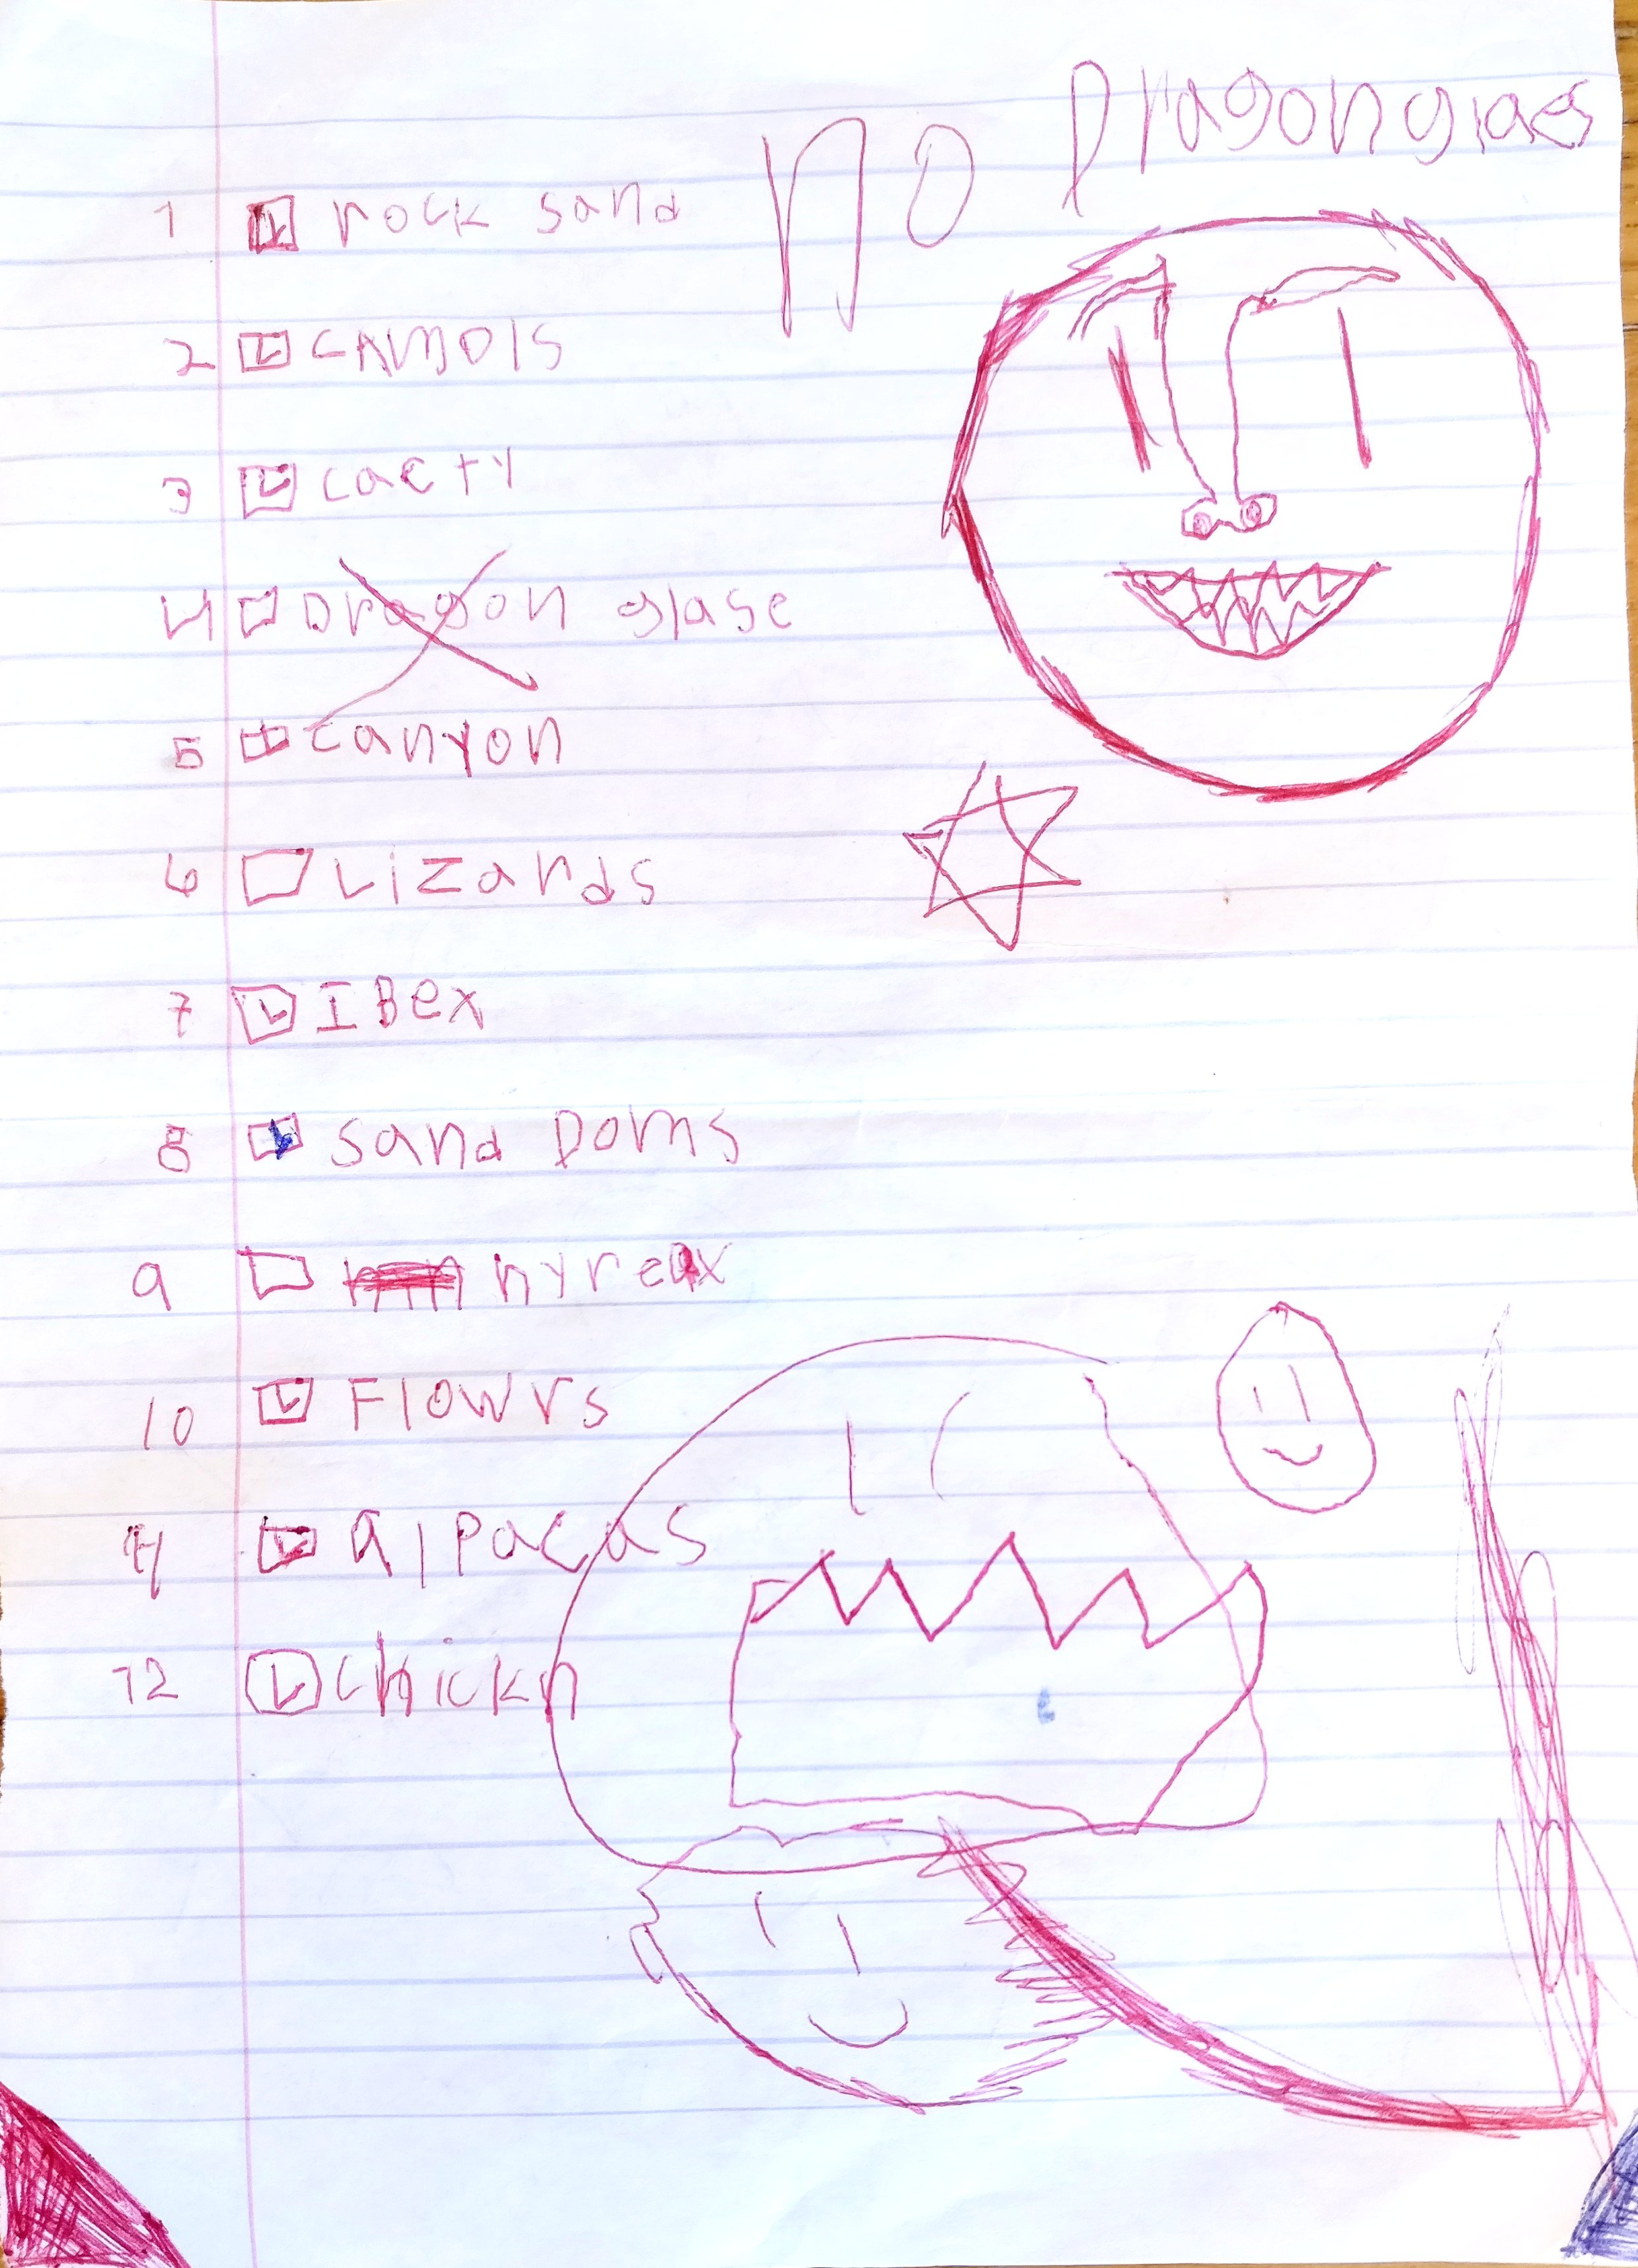 no Dragon glaes
1 rock sand
2 camols
3 cacty
4 Dragon glase
5 canyon
6 Lizards
7 IBex
8 sand Doms
9 hyreax
10 Flowrs
11 alpacas
12 chickn